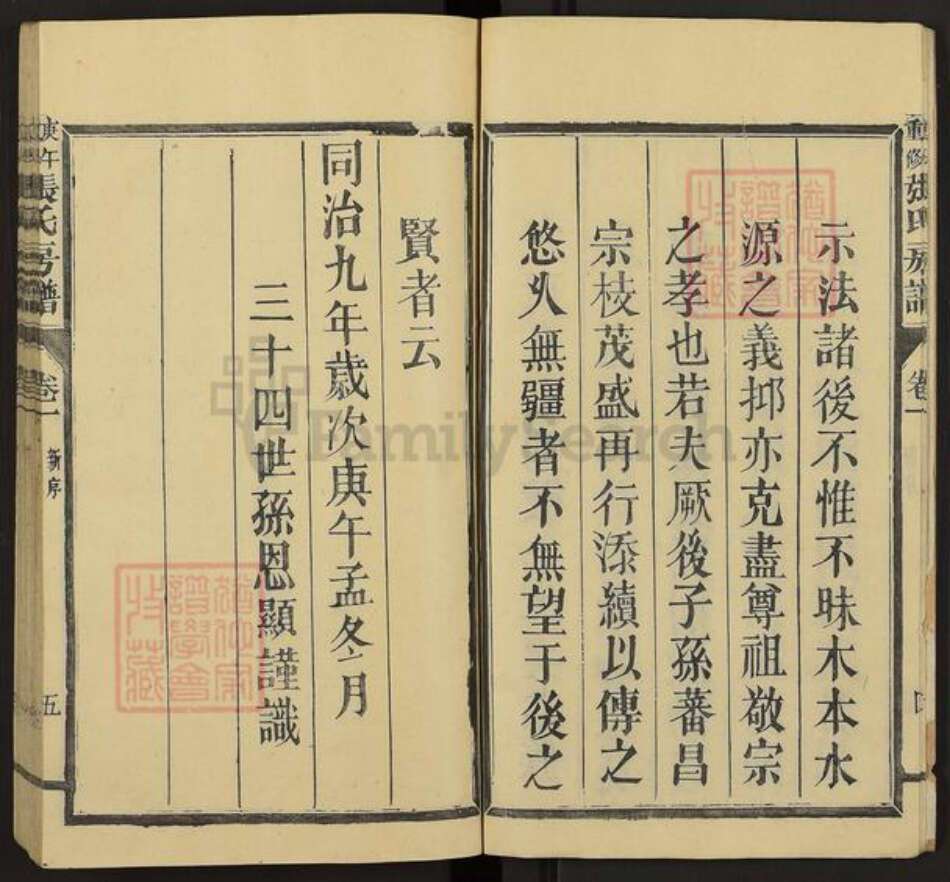 重修張氏房譜
卷一
示法諸後不惟不昧木本水
源之義抑亦克盡尊祖敬宗
之孝也若夫厥後子孫蕃昌
宗枝茂盛再行添續以傳之
悠久無疆者不無望于後之
賢者云
同治九年歲次庚午孟冬月
三十四世孫恩顯謹識
庚午張氏房譜
卷一
新序
五
FamilySearch